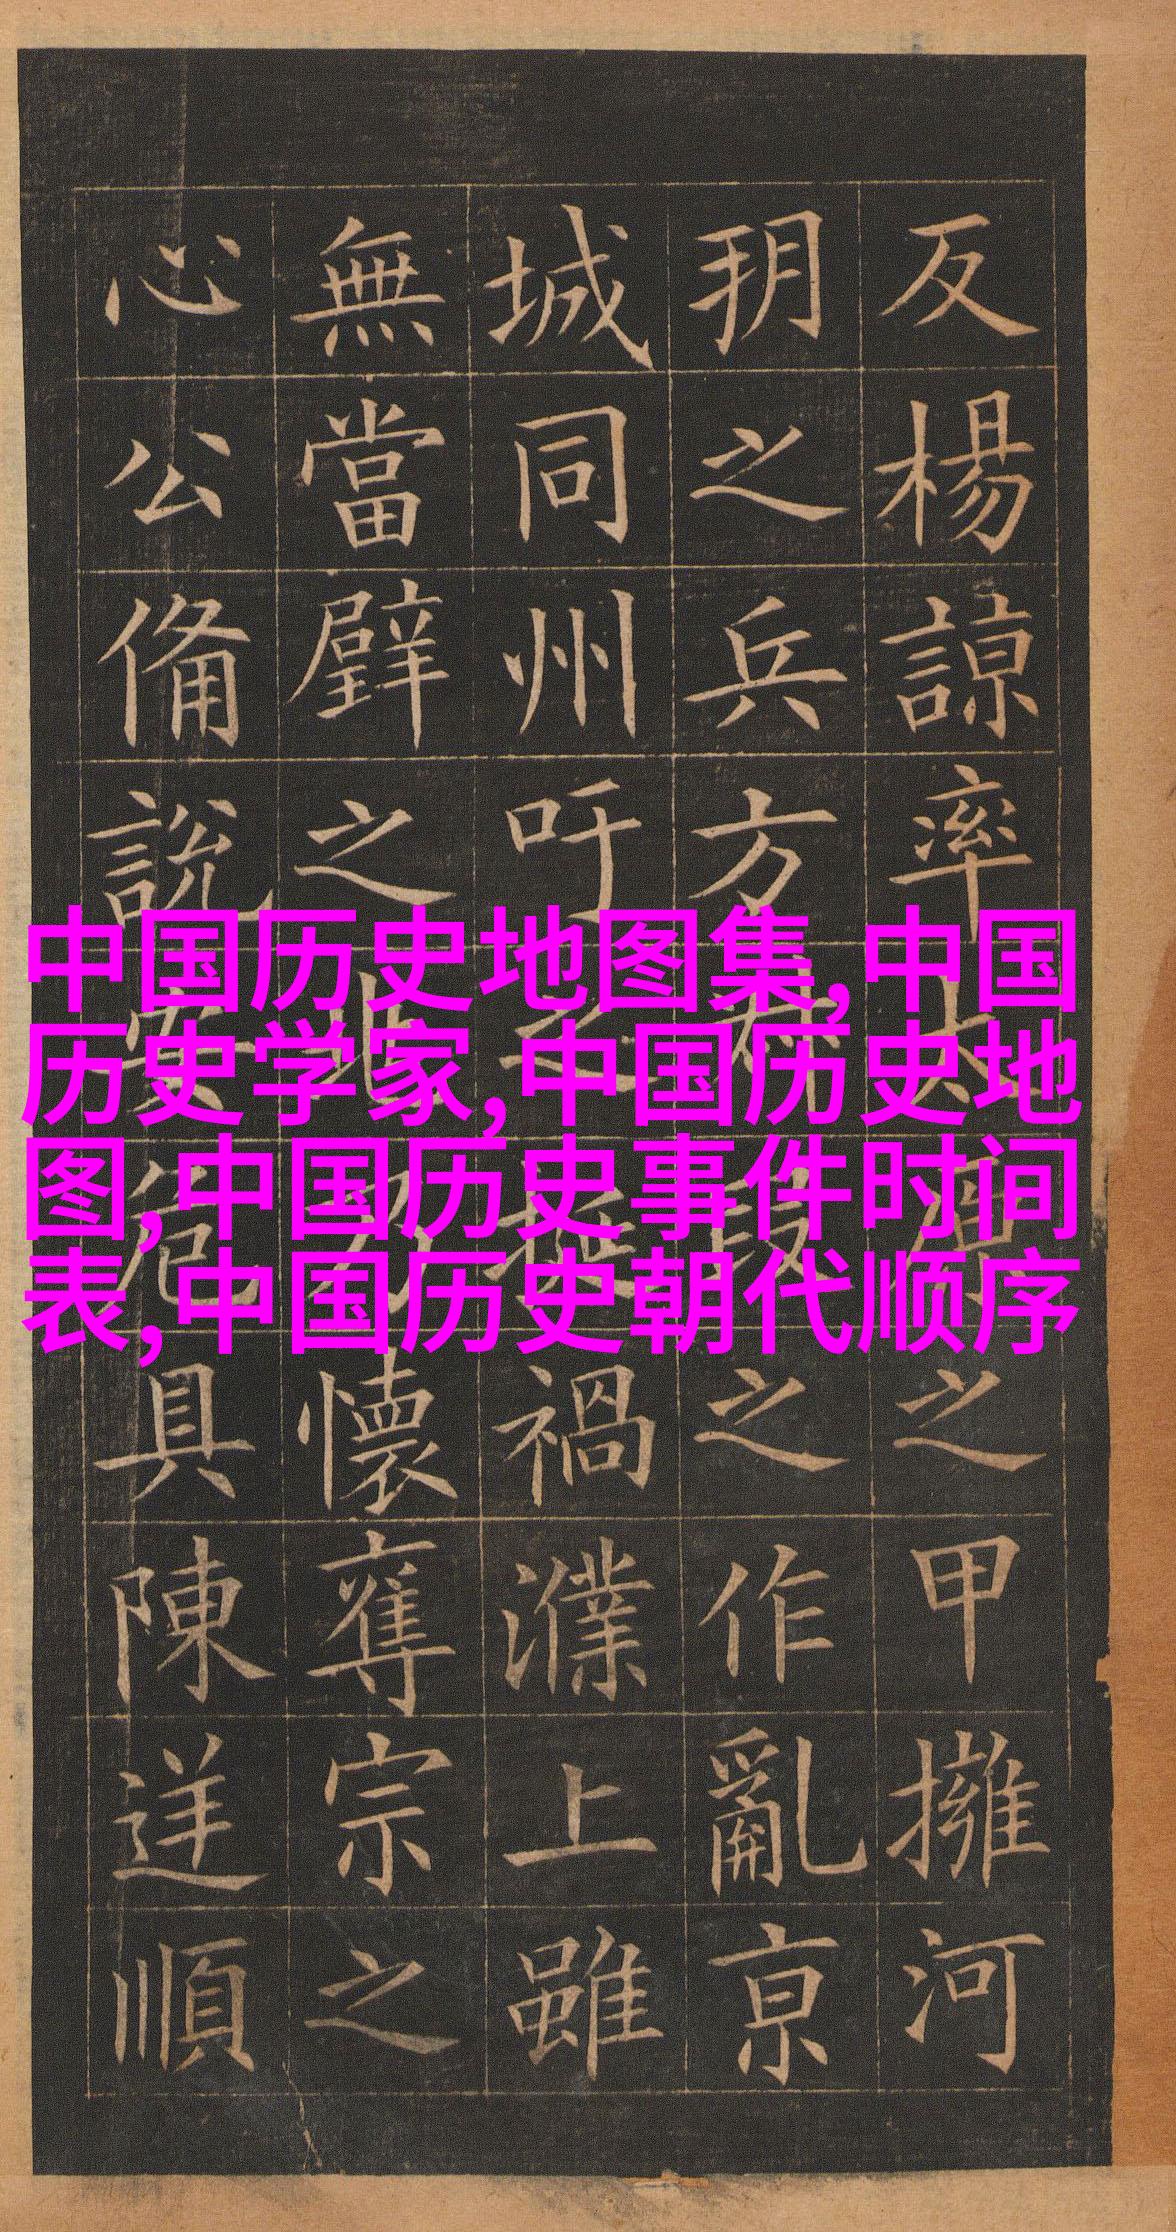 反楊諒率太原之甲擁河
玥之兵方叔段之作亂京
城同州吁之挻禍濮上雖
無當璧之兆乃懷奪宗之
心公備説安危具陳逆順
中国历史地图集,中国
历史学家,中国历史地
图,中国历史事件时间
表,中国历史朝代顺序